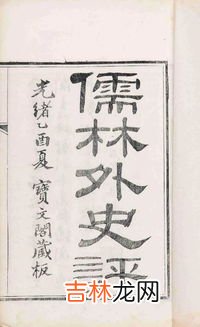 儒林外史評
光緒乙酉夏
寶文閣藏板
吉林龙网